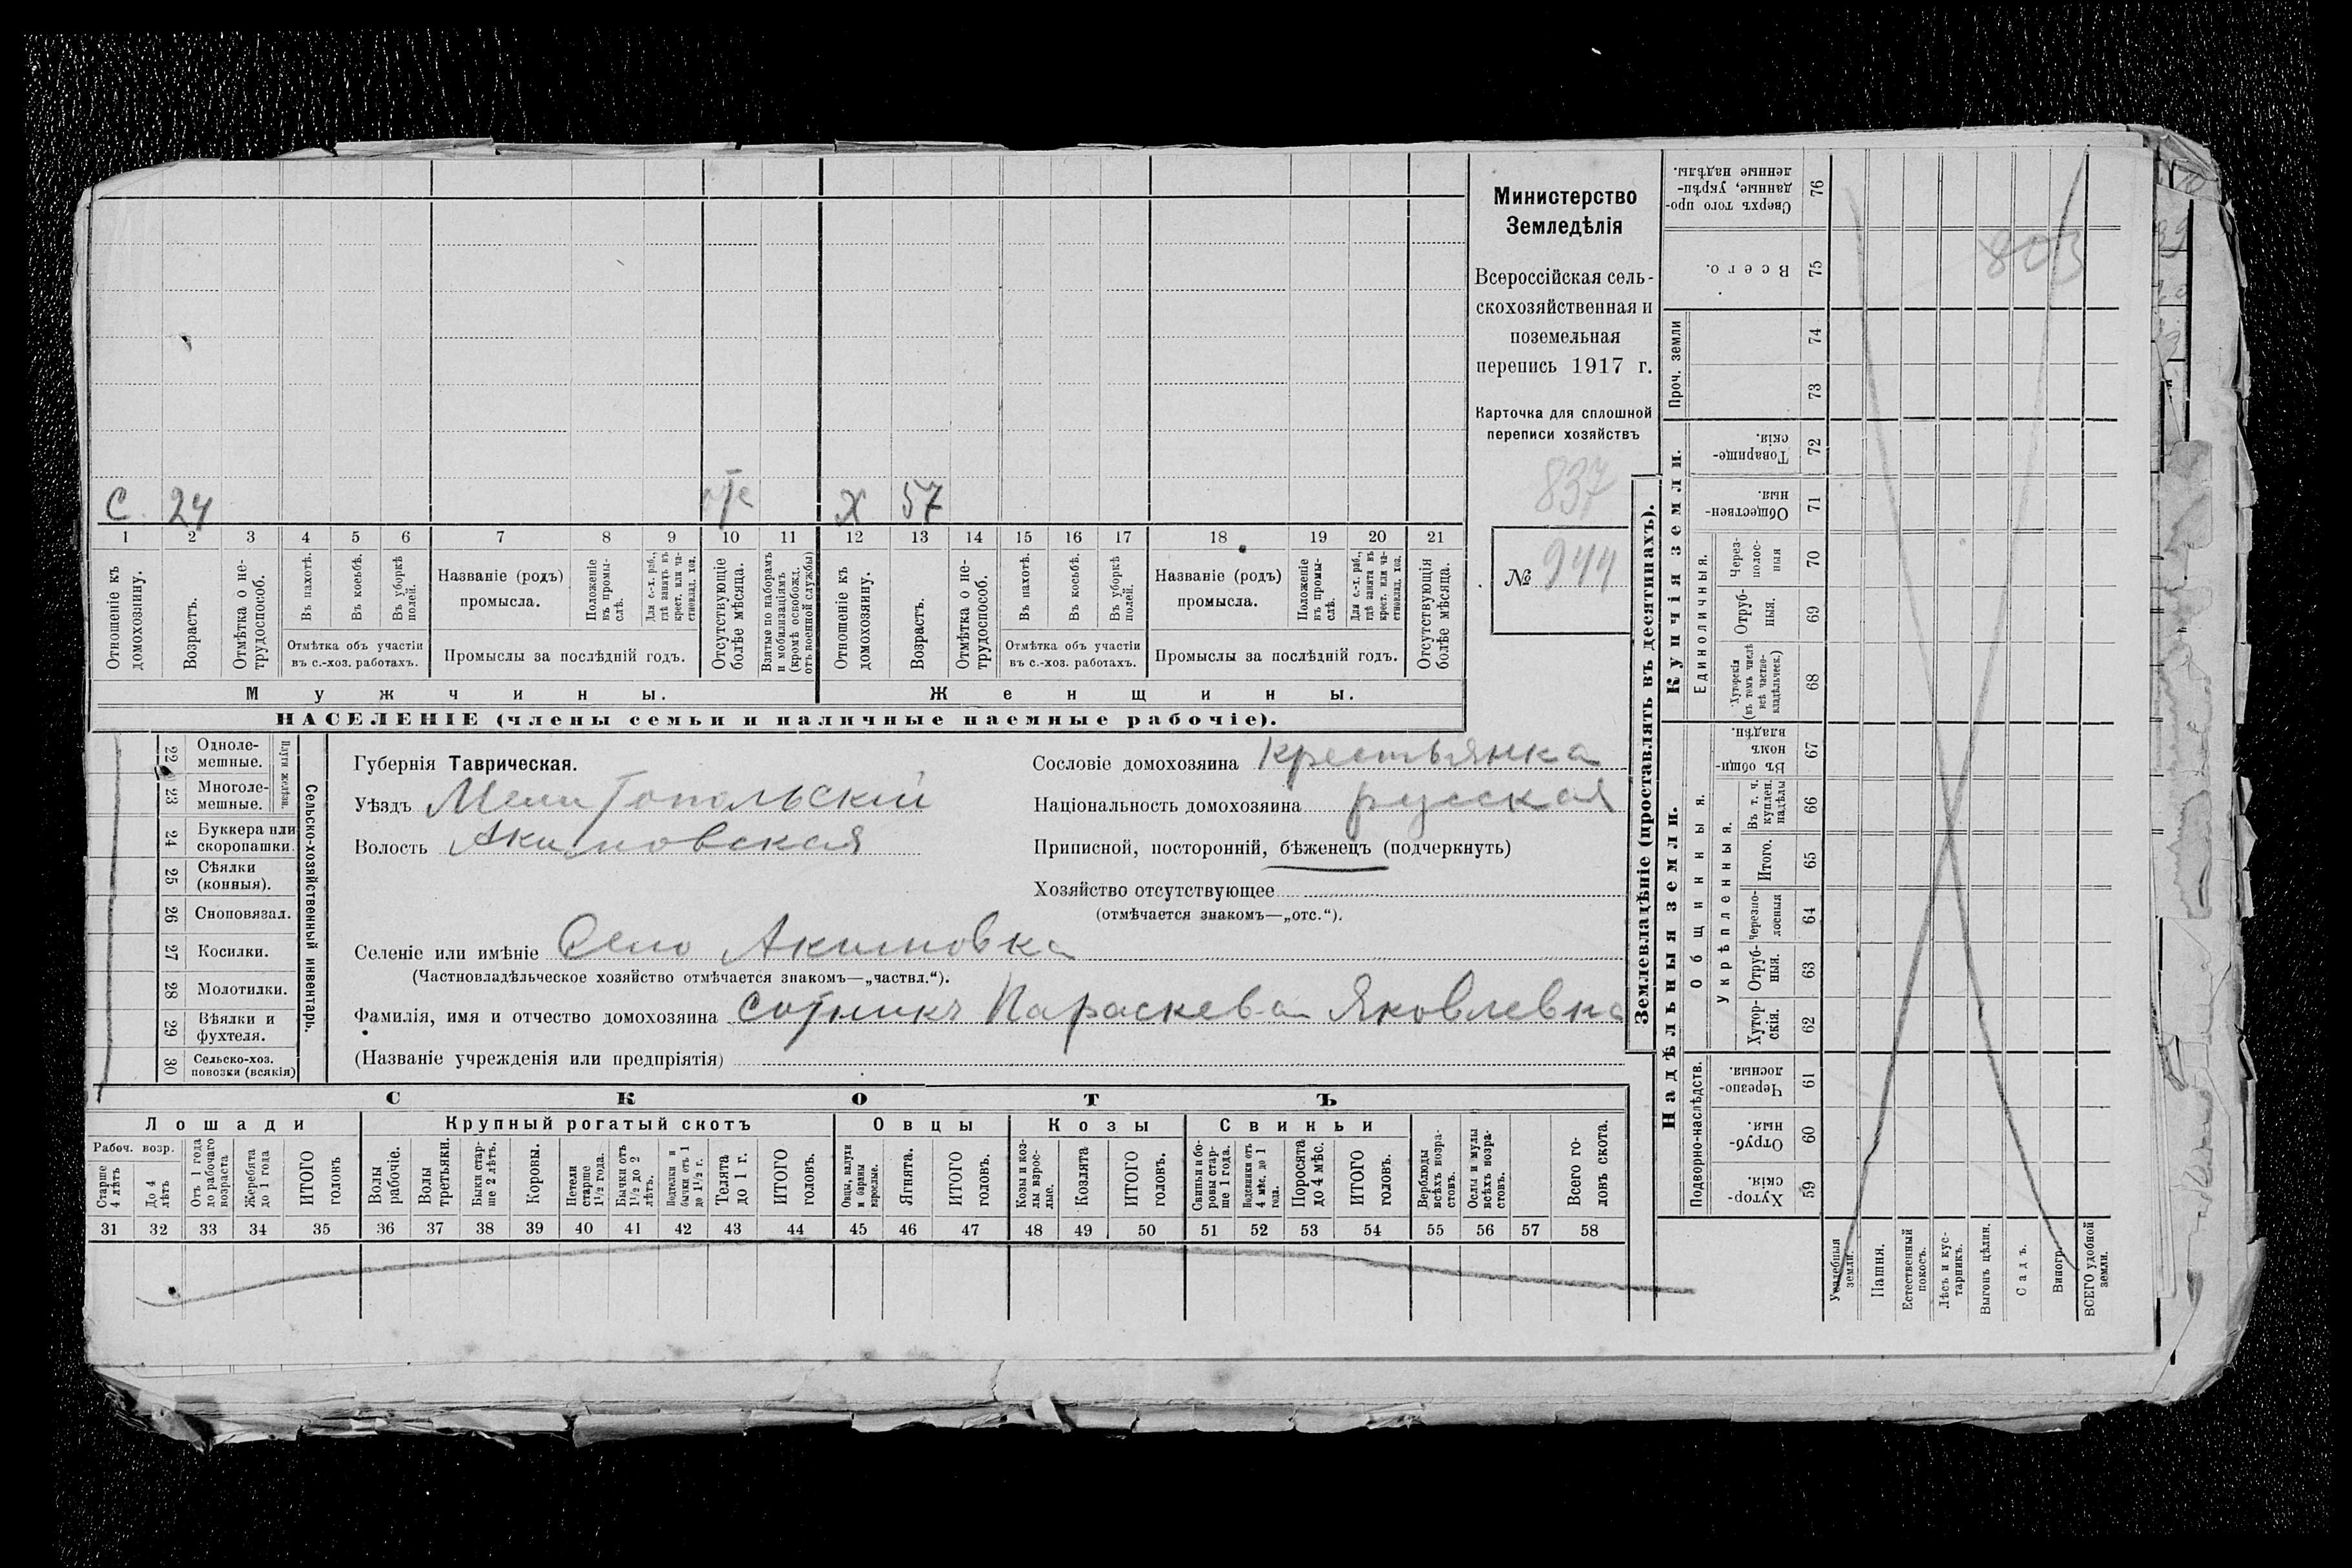 Министерство
Земледѣлія
Всероссійская сель-
скохозяйственная и
поземельная
перепись 1917 г.
Карточка для сплошной
переписи хозяйствъ
837
№ 944
С. 24 Х 57
1 2 3 4 5 6 7 8 9 10 11 12 13 14 15 16 17 18 19 20 21
Отношеніе къ домохозяину.
Возрастъ.
Отмѣтка о не-трудоспособ.
Въ пахотѣ.
Въ косьбѣ.
Въ уборкѣ полей.
Отмѣтка объ участіи
въ с.-хоз. работахъ.
Названіе (родъ)
промысла.
Положеніе въ промы-слѣ.
Для с.-х. раб., гдѣ занятъ въ крест. или ча-стновлад. хоз.
Промыслы за послѣдній годъ.
Отсутствующіе болѣе мѣсяца.
Взятые по наборамъ и мобилизаціямъ (кромѣ освобожд. отъ военной службы)
Отношеніе къ домохозяину.
Возрастъ.
Отмѣтка о не-трудоспособ.
Въ пахотѣ.
Въ косьбѣ.
Въ уборкѣ полей.
Отмѣтка объ участіи
въ с.-хоз. работахъ.
Названіе (родъ)
промысла.
Положеніе въ промы-слѣ.
Для с.-х. раб., гдѣ занята въ крест. или ча-стновлад. хоз.
Промыслы за послѣдній годъ.
Отсутствующія болѣе мѣсяца.
Мужчины.
Женщины.
НАСЕЛЕНІЕ (члены семьи и наличные наемные рабочіе).
22 Одноле-мешные.
23 Многоле-мешные.
Плуги желѣзн.
24 Буккера или скоропашки.
25 Сѣялки (конныя).
26 Сноповязал.
27 Косилки.
28 Молотилки.
29 Вѣялки и фухтеля.
30 Сельско-хоз. повозки (всякія)
Сельско-хозяйственный инвентарь.
Губернія Таврическая.
Уѣздъ Мелитопольскій
Волость Акимовская
Сословіе домохозяина крестьянка
Національность домохозяина русская
Приписной, посторонній, бѣженецъ (подчеркнуть)
Хозяйство отсутствующее
(отмѣчается знакомъ—„отс.“).
Селеніе или имѣніе Село Акимовка
(Частновладѣльческое хозяйство отмѣчается знакомъ—„частвл.“).
Фамилія, имя и отчество домохозяина Сотникъ Параскева Яковлевна
(Названіе учрежденія или предпріятія)
СКОТЪ
Лошади
Крупный рогатый скотъ
Овцы
Козы
Свиньи
Рабоч. возр.
Старше 4 лѣтъ
До 4 лѣтъ
Отъ 1 года до рабочаго возраста
Жеребята до 1 года
ИТОГО головъ
Волы рабочіе.
Волы третьяки.
Быки стар-ше 2 лѣтъ.
Коровы.
Нетели старше 1½ года.
Бычки отъ 1½ до 2 лѣтъ.
Подтелки и бычки отъ 1 до 1½ г.
Телята до 1 г.
ИТОГО головъ.
Овцы, валухи и бараны взрослые.
Ягнята.
ИТОГО головъ.
Козы и коз-лы взрос-лые.
Козлята
ИТОГО головъ.
Свиньи и бо-ровы стар-ше 1 года.
Подсвинки отъ 4 мѣс. до 1 года.
Поросята до 4 мѣс.
ИТОГО головъ.
Верблюды всѣхъ возра-стовъ.
Ослы и мулы всѣхъ возра-стовъ.
Всего го-ловъ скота.
31 32 33 34 35 36 37 38 39 40 41 42 43 44 45 46 47 48 49 50 51 52 53 54 55 56 57 58
Землевладѣніе (проставлять въ десятинахъ).
Купчія земли.
Надѣльныя земли.
Сверхъ того про-данные, укрѣп-ленные надѣлы. 76
Всего. 75
803
Проч. земли
74
73
Товарище-скія. 72
Обществен-ныя. 71
Единоличныя.
Через-полос-ныя 70
Отруб-ныя. 69
Хуторскія (въ томъ числѣ всѣ частно-владѣльческ.) 68
Общинныя.
Въ общи-номъ владѣн. 67
Укрѣпленныя.
Въ т. ч. куплен. надѣлы 66
Итого. 65
Черезпо-лосныя 64
Отруб-ныя. 63
Хутор-скія. 62
Подворно-наслѣдств.
Черезпо-лосныя 61
Отруб-ныя. 60
Хутор-скія. 59
Усадебныя земли.
Пашня.
Естественный покосъ.
Лѣсъ и кус-тарникъ.
Выгонъ цѣлин.
Садъ.
Виногр.
ВСЕГО удобной земли.